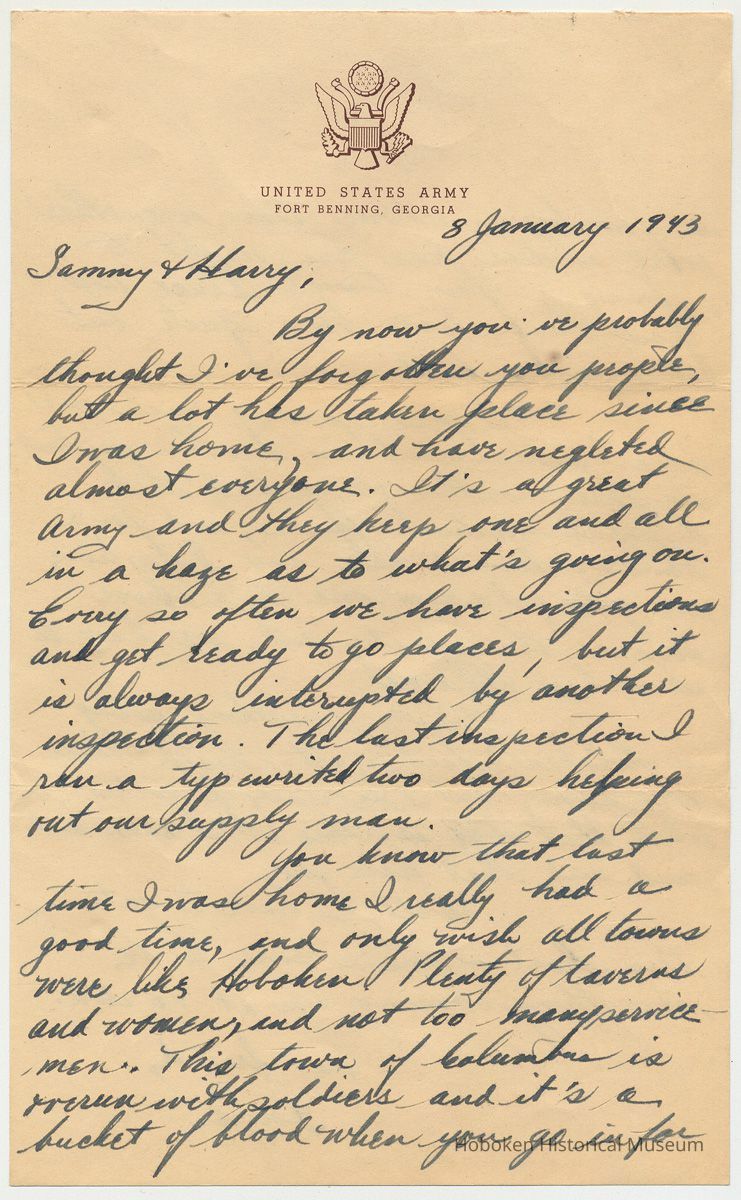 UNITED STATES ARMY
FORT BENNING, GEORGIA
8 January 1943
Sammy & Harry,
By now you've probably
thought I've forgotten you people,
but a lot has taken place since
I was home, and have negleted
almost everyone. It's a great
Army and they keep one and all
in a haze as to what's going on.
Every so often we have inspections
and get ready to go places, but it
is always interupted by another
inspection. The last inspection I
ran a typewrited two days helping
out our supply man.
You know that last
time I was home I really had a
good time, and only wish all towns
were like Hoboken Plenty of taverns
and women, and not too many service
men.. This town of Columbus is
overun with soldiers and it's a
bucket of blood when you go in for
Hoboken Historical Museum